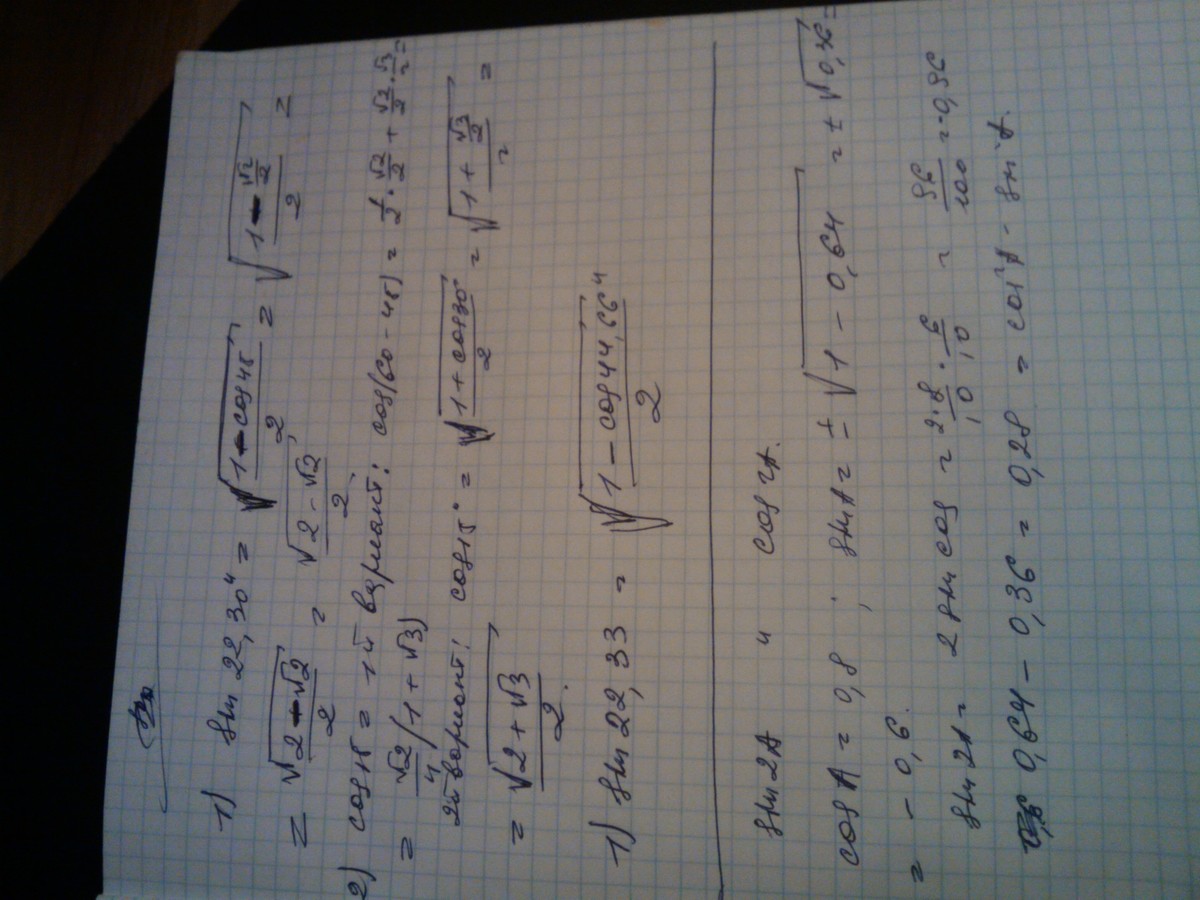 1) sin 22,30" = √(1 - cos 45 / 2) = √(1 - √2/2 / 2) =
= √(2 - √2) / 2 = √(2 - √2) / 2
2) cos 15 = 1й вариант: cos(60 - 45) = 1/2 · √2/2 + √2/2 · √3/2 =
= √2/4 (1 + √3)
2й вариант: cos 15° = √(1 + cos 30° / 2) = √(1 + √3/2 / 2) =
= √(2 + √3) / 2.
1) sin 22,33 = √(1 - cos 44,66" / 2)
sin 2A и cos 2A.
cos A = 0,8 ; sin A = ± √(1 - 0,64) = ± √0,36 =
= - 0,6.
sin 2A = 2 sin cos = 2 · 8/10 · 6/10 = 96/100 = 0,96
0,64 - 0,36 = 0,28 = cos²A - sin²A.